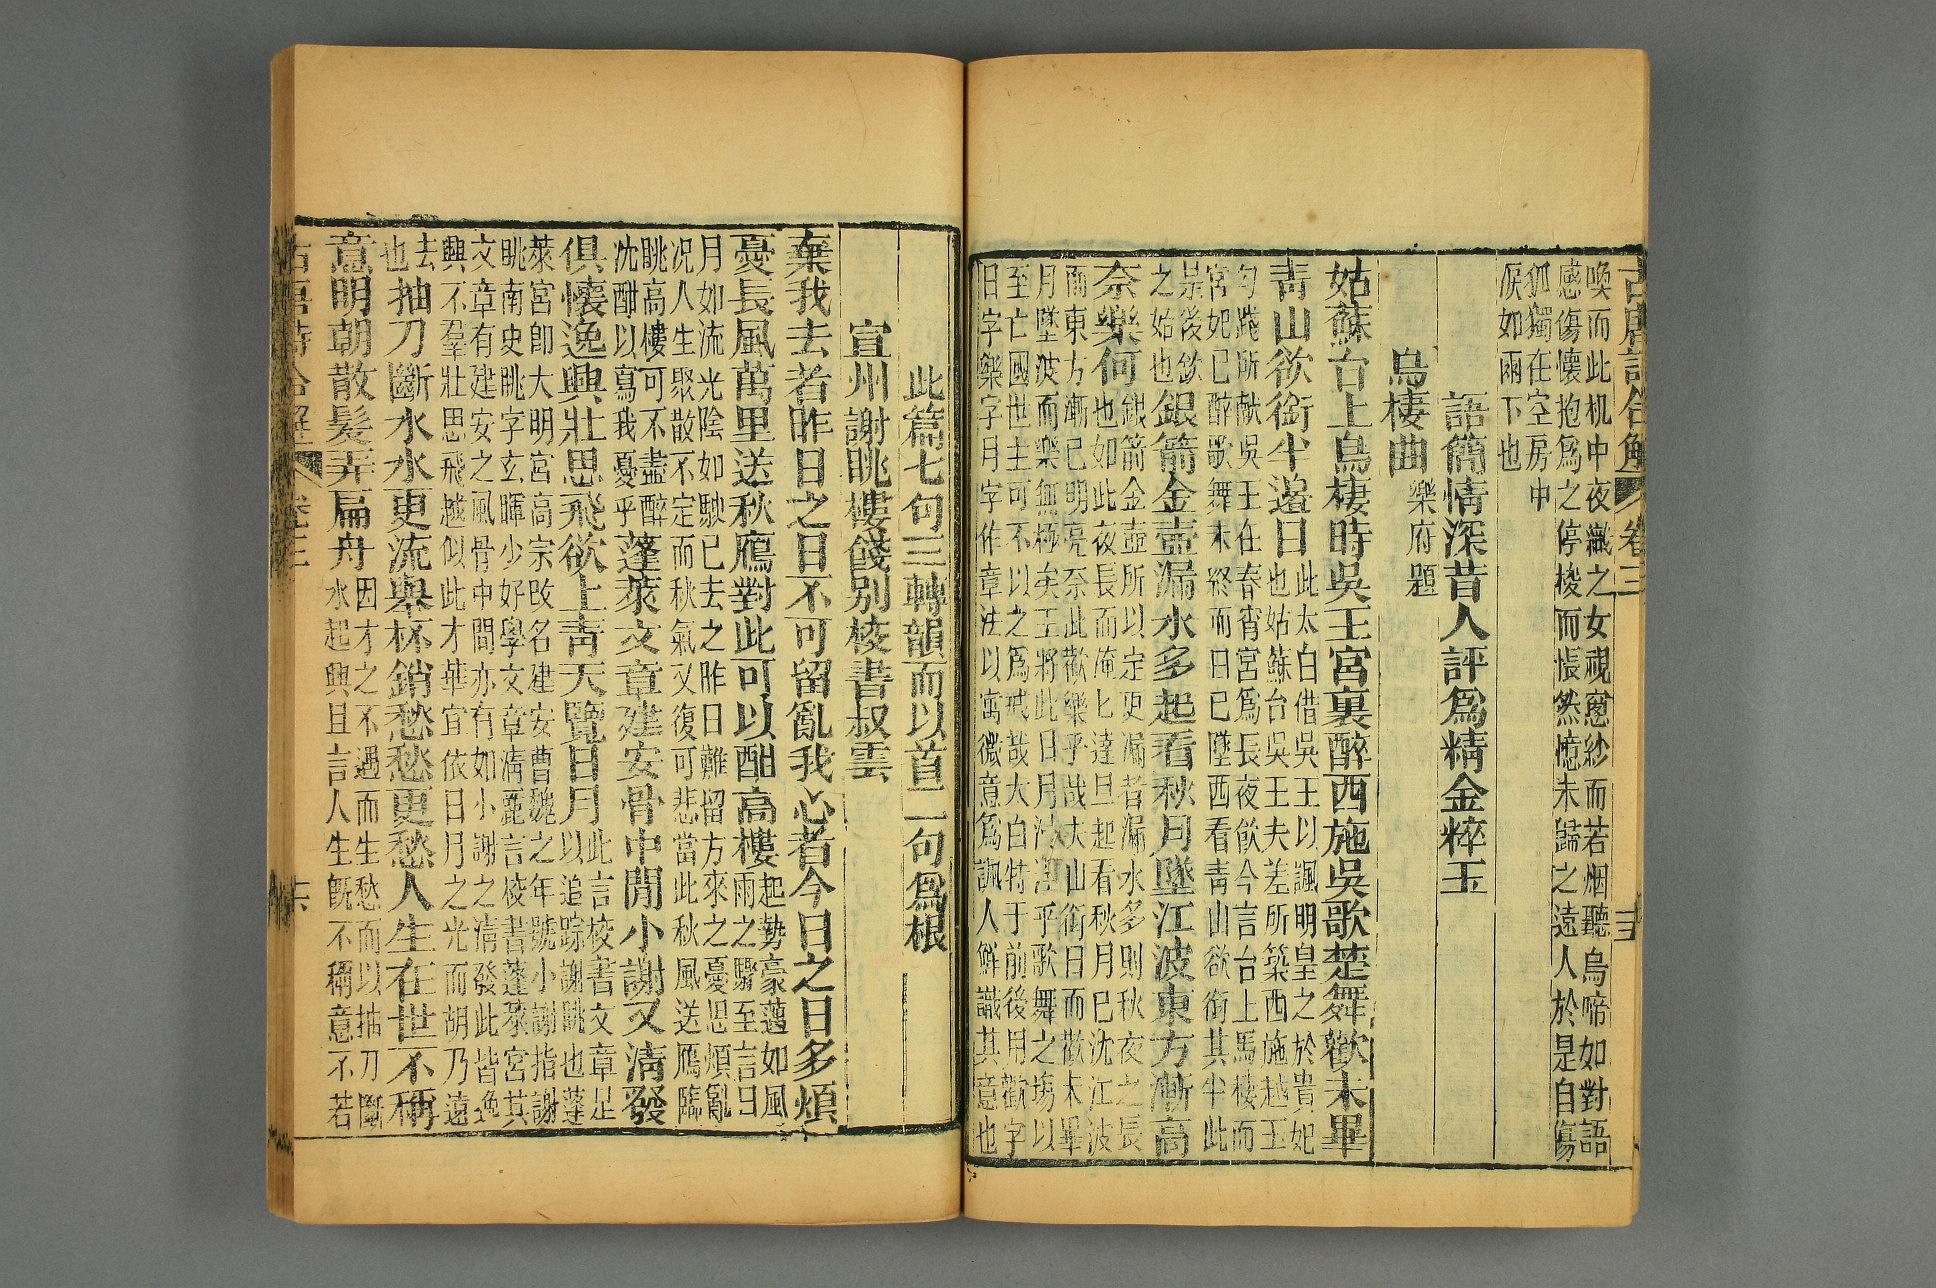 古唐詩合解 卷三
喚而此机中夜織之女視窻紗而若烟聽烏啼如對語
感傷懷抱為之停梭而悵然憶未歸之遠人於是自傷
孤獨在空房中
淚如雨下也
語簡情深昔人評為精金粹玉
烏棲曲 樂府題
姑蘇台上烏棲時吳王宮裏醉西施吳歌楚舞歡未畢
青山欲銜半邊日
此太白借吳王以諷明皇之於貴妃
也姑蘇台吳王夫差所築西施越王
勾踐所献吳王在春宵宮為長夜飲今言台上馬棲而
宮妃已醉歌舞未終而日已墜西看青山欲銜其半此
吳後飲
之姑也
銀箭金壺漏水多起看秋月墜江波東方漸高
奈樂何
銀箭金壺所以定更漏者漏水多則秋夜之長
也如此夜長而俺匕達旦起看秋月已沈江波
而東方漸已明亮奈此歡樂乎哉夫山銜日而歡未畢
月墜波而樂無極矣王將此日月
乎歌舞之塲以
至亡國世主可不以之為戒哉太白特于前後用歡字
日字樂字月字作章法以寓微意為諷人鮮識其意也
此篇七句三轉韻而以首二句為根
宣州謝朓樓餞别校書叔雲
棄我去者昨日之日不可留亂我心者今日之日多煩
憂長風萬里送秋鴈對此可以酣高樓
起勢豪邁如風
雨之驟至言日
月如流光陰如駛已去之昨日難留方來之憂思煩亂
况人生聚散不定而秋氣又復可悲當此秋風送鴈臨
眺高樓可不盡醉
沈酣以寫我憂乎
蓬萊文章建安骨中間小謝又清發
俱懷逸興壯思飛欲上青天覽日月
此言校書文章足
以追踪謝朓也蓬
萊宮即大明宮高宗改名建安曹魏之年號小謝指謝
朓南史朓字玄暉少好學文章清麗言校書蓬萊宮其
文章有建安之風骨中間亦有如小謝之清發此皆逸
興不羣壯思飛越似此才華宜依日月之光而胡乃遠
去
也
抽刀斷水水更流舉杯銷愁愁更愁人生在世不稱
意明朝散髮弄扁舟
因才之不遇而生愁而以抽刀斷
水起興且言人生既不稱意不若
古唐詩合解 卷三 十六